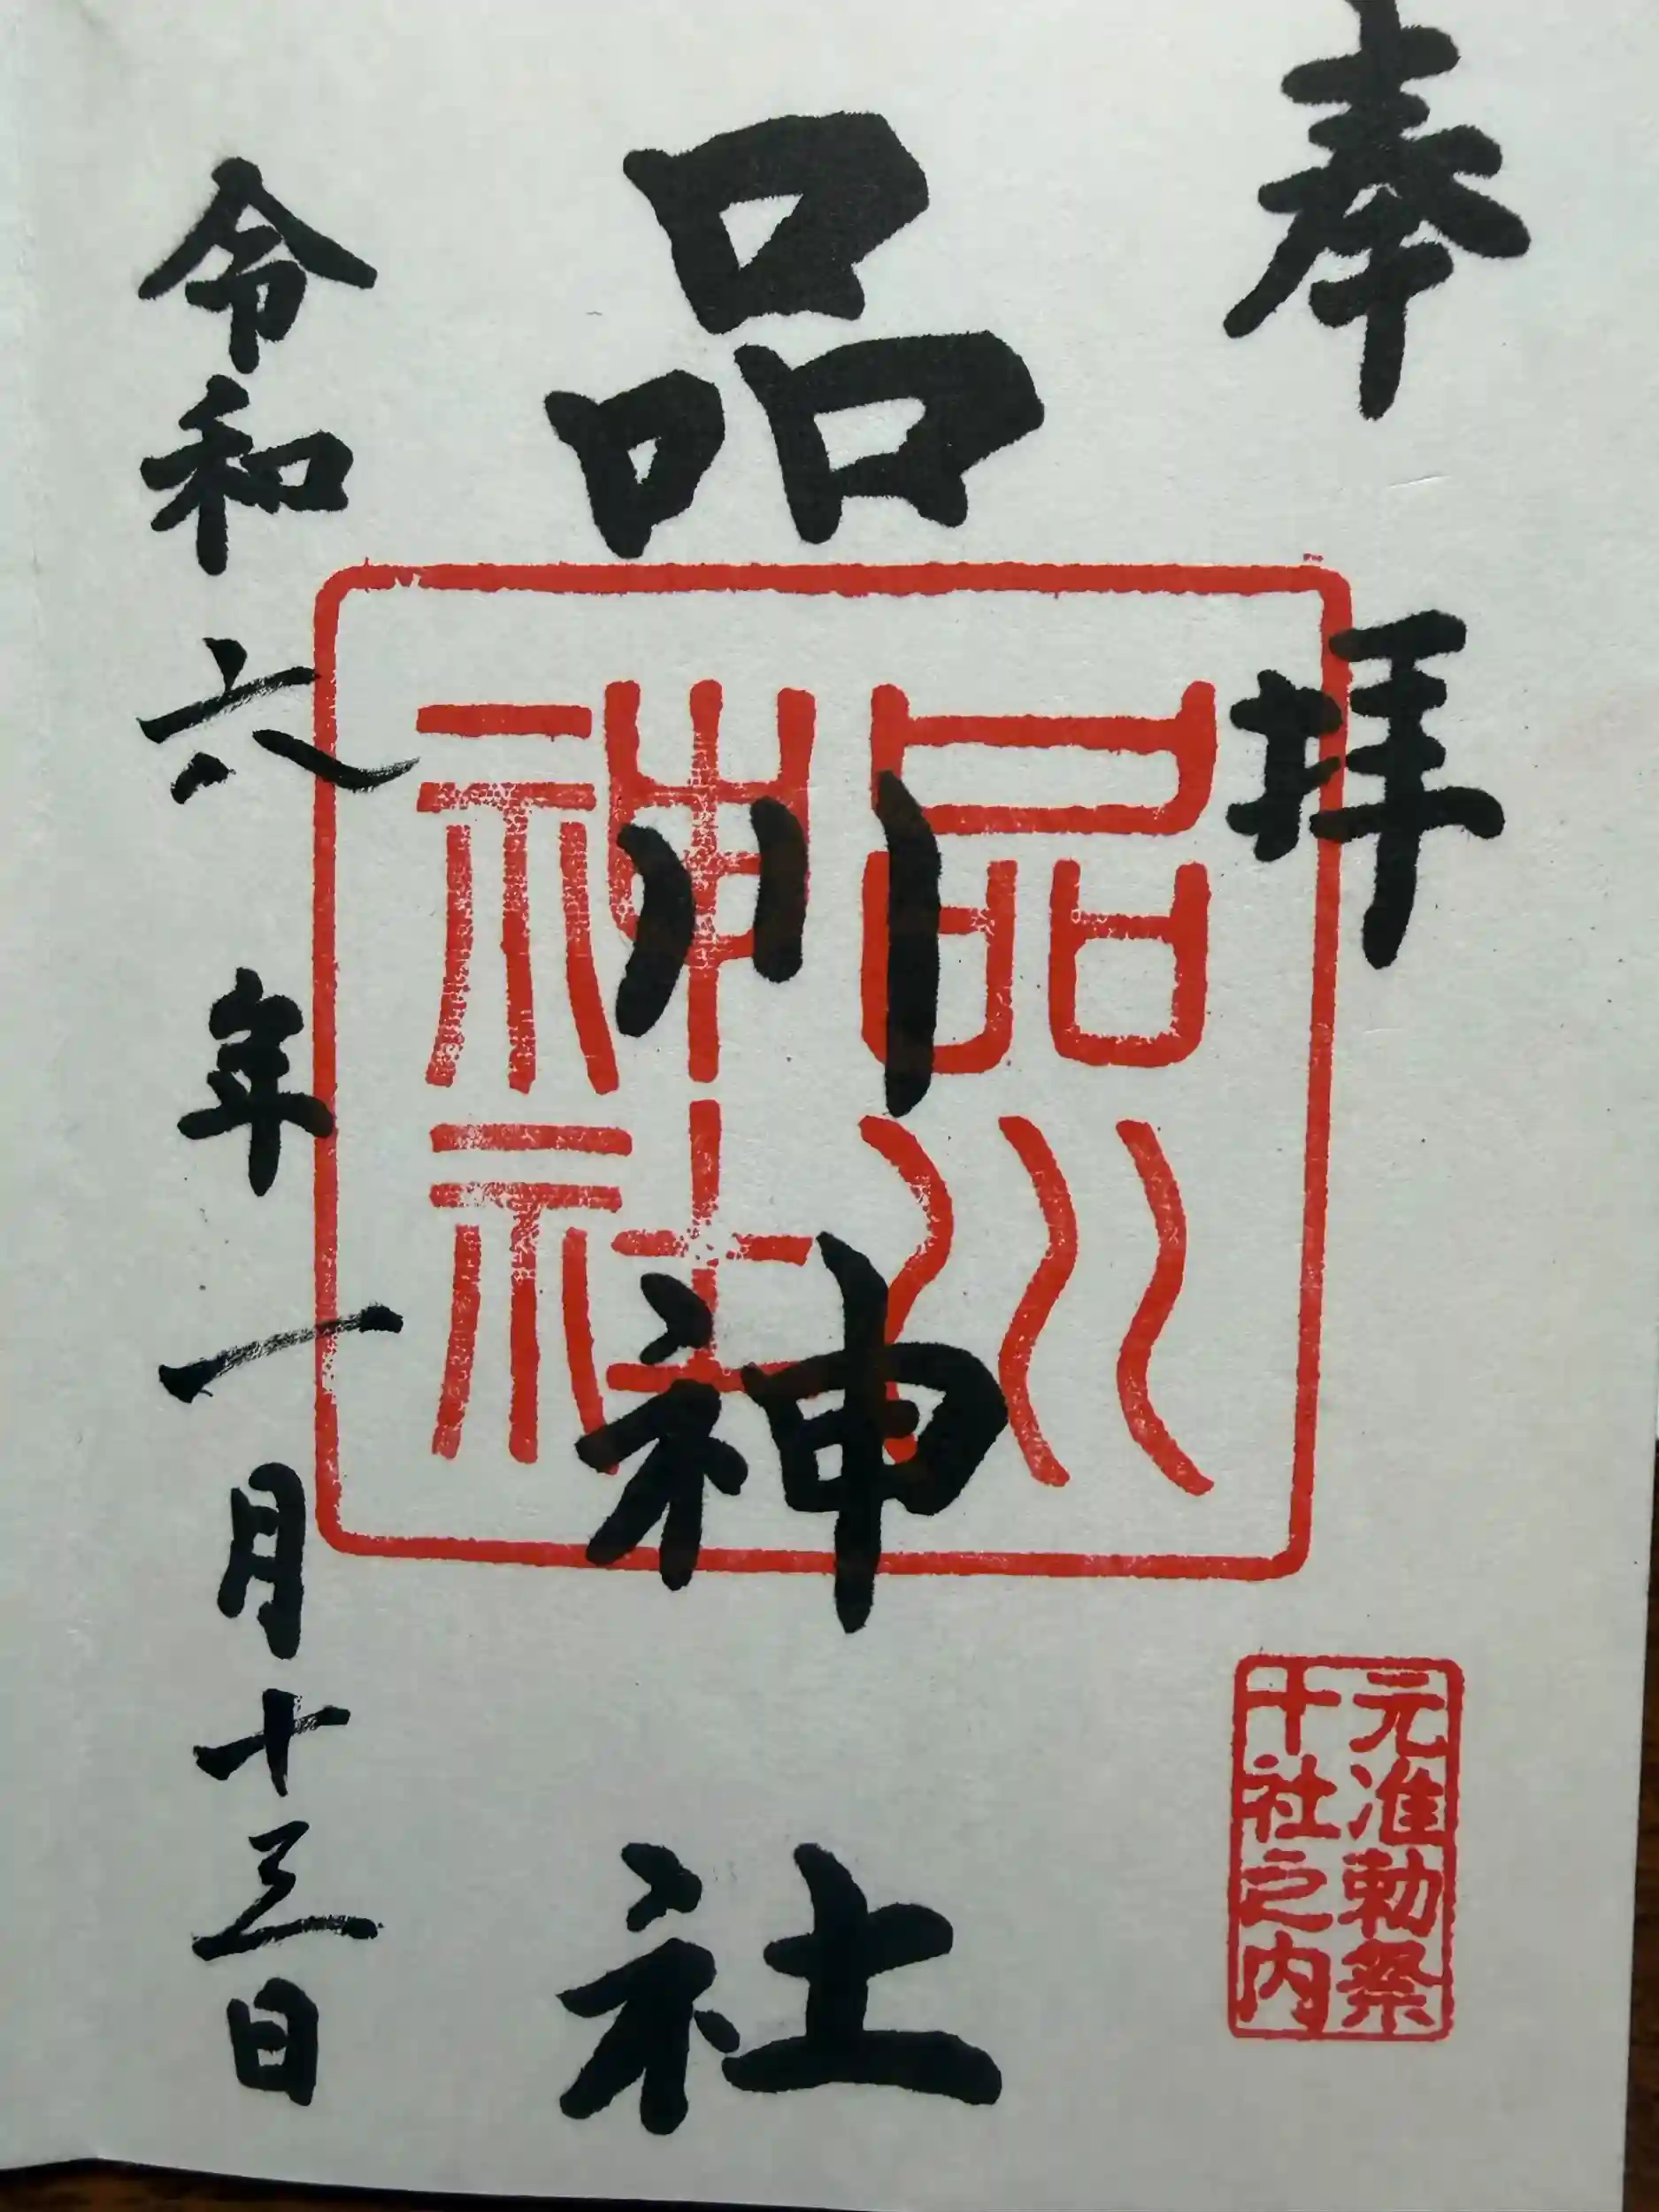 奉拝
品川神社
品川神社
元准勅祭
十社之内
令和六年一月十三日